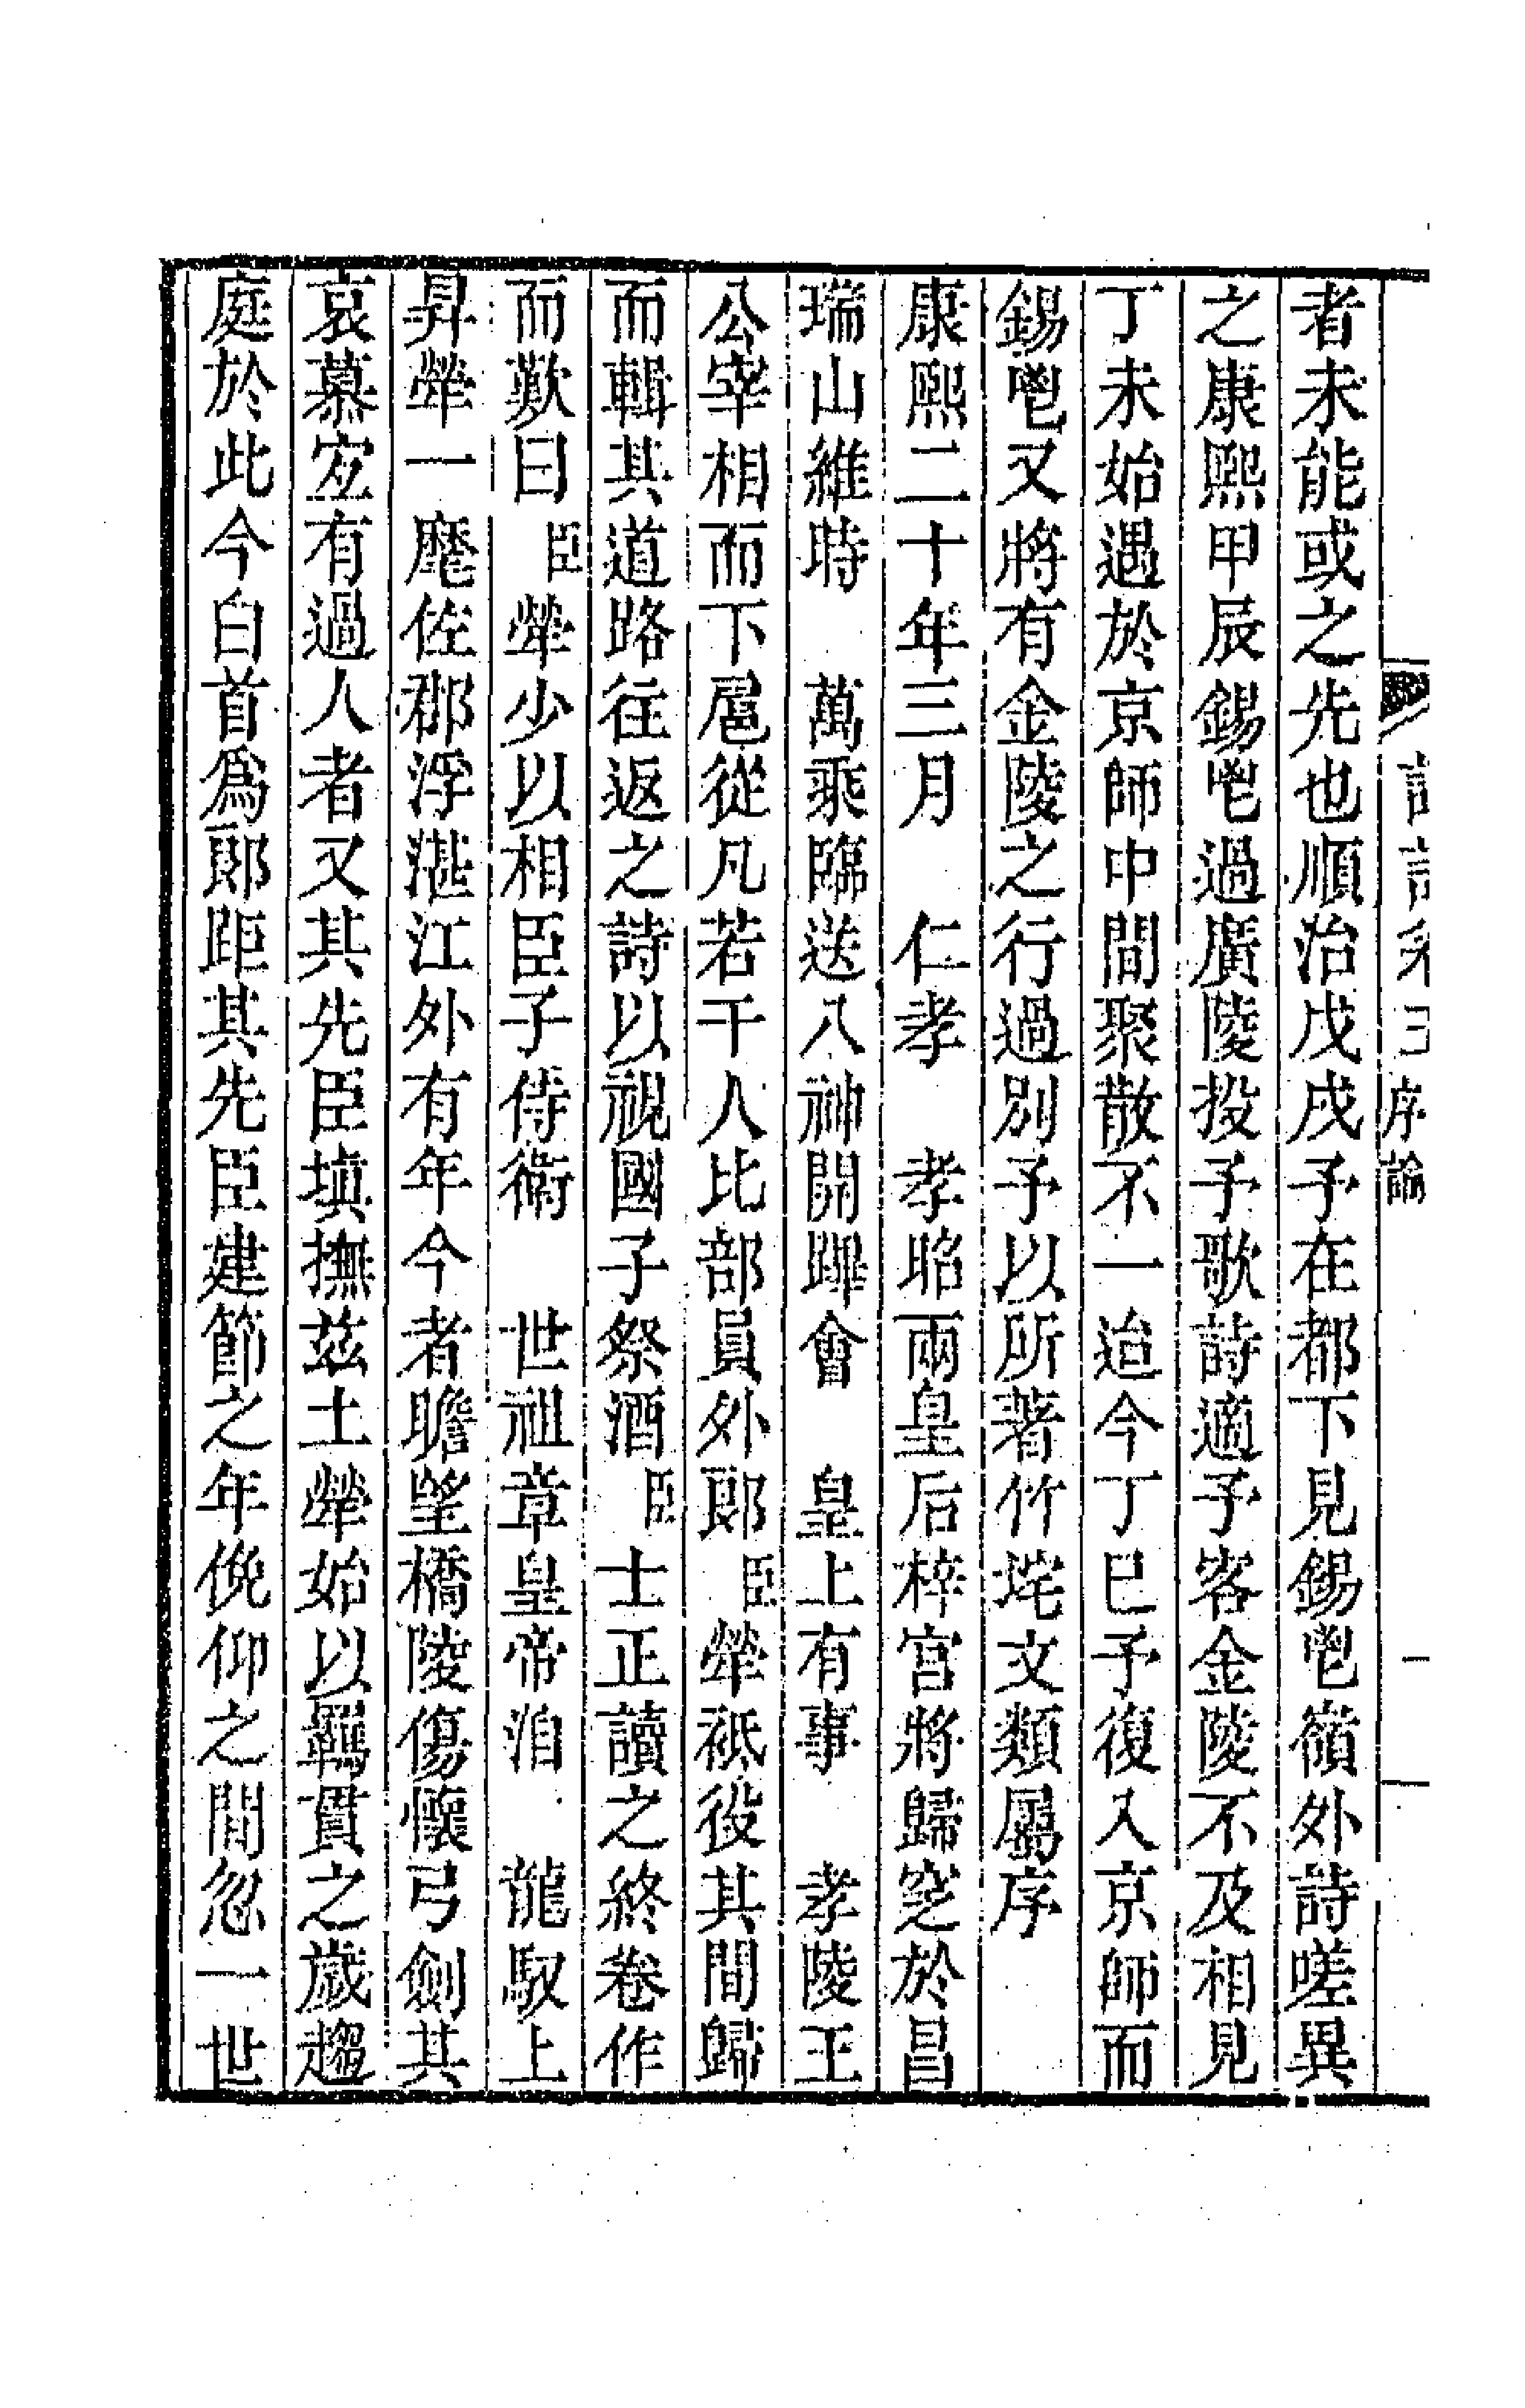 序論
者未能或之先也順治戊戌予在都下見錫鬯嶺外詩嗟異
之康熙甲辰錫鬯過廣陵投予歌詩適予客金陵不及相見
丁未始遇於京師中間聚散不一迨今丁巳予復入京師而
錫鬯又將有金陵之行過別予以所著竹垞文類屬序
康熙二十年三月 仁孝 孝昭兩皇后梓宮將歸窆於昌
瑞山維時 萬乘臨送八神開蹕會 皇上有事 孝陵王
公宰相而下扈從凡若干人比部員外郎臣犖祗役其間歸
而輯其道路往返之詩以視國子祭酒臣士正讀之終卷作
而歎曰臣犖少以相臣子侍衞 世祖章皇帝洎 龍馭上
昇犖一麾佐郡浮湛江外有年今者瞻望橋陵傷懷弓劍其
哀慕宐有過人者又其先臣塡撫茲土犖始以羈貫之歲趨
庭於此今白首爲郎距其先臣建節之年俛仰之間忽一世